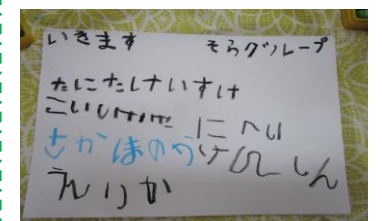 いきます そらグループ
たにたけいすけ
こいし にへい
さかほのか けんしん
えりか